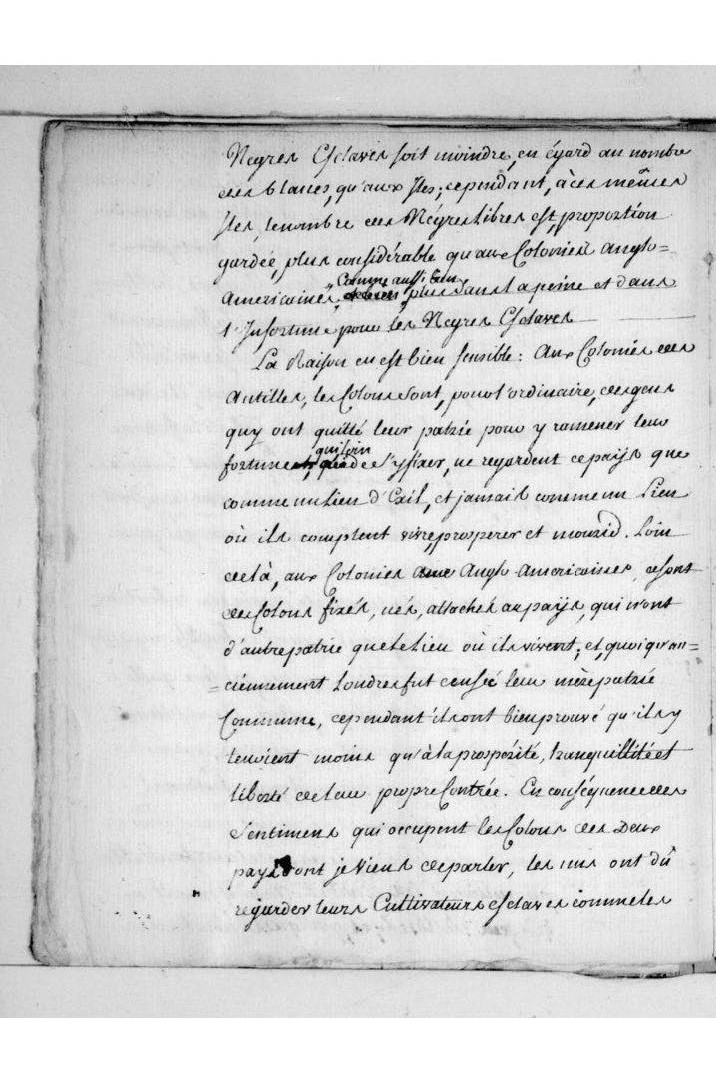 Négres Esclaves soit moindre, en égard au nombre
des blancs, qu'aux Isles; cependant, à ces mêmes
Isles, le nombre des Négres Libres est, proportion
gardée, plus considérable qu'aux Colonies anglo=
Comme aussi bien
américaines, plus dans la peine et dans
l'Infortune pour les Négres Esclaves
La Raison en est bien sensible: Aux Colonies des
Antilles, les Colons sont, pour l'ordinaire, des gens
quy ont quitté leur patrie pour y ramener leur
qui loin
fortune, de s'y fixer, ne regardent ce pays que
comme un Lieu d'Exil, et jamais comme un Lieu
où ils comptent vivre, prosperer et mourir. Loin
de là, aux Colonies Anglo-Americaines, ce sont
des Colons fixés, nés, attachés au pays, qui n'ont
d'autre patrie que le Lieu où ils vivent; et, quoiqu'an=
=ciennement Londres fut censée leur mère patrie
Commune, cependant ils ont bien prouvé qu'ils y
tenoient moins qu'à la prospérité, tranquillité et
liberté de leur propre Contrée. En conséquence des
Sentimens qui occupent les Colons des Deux
pays dont je viens de parler, les uns ont dû
regarder leurs Cultivateurs esclaves comme les